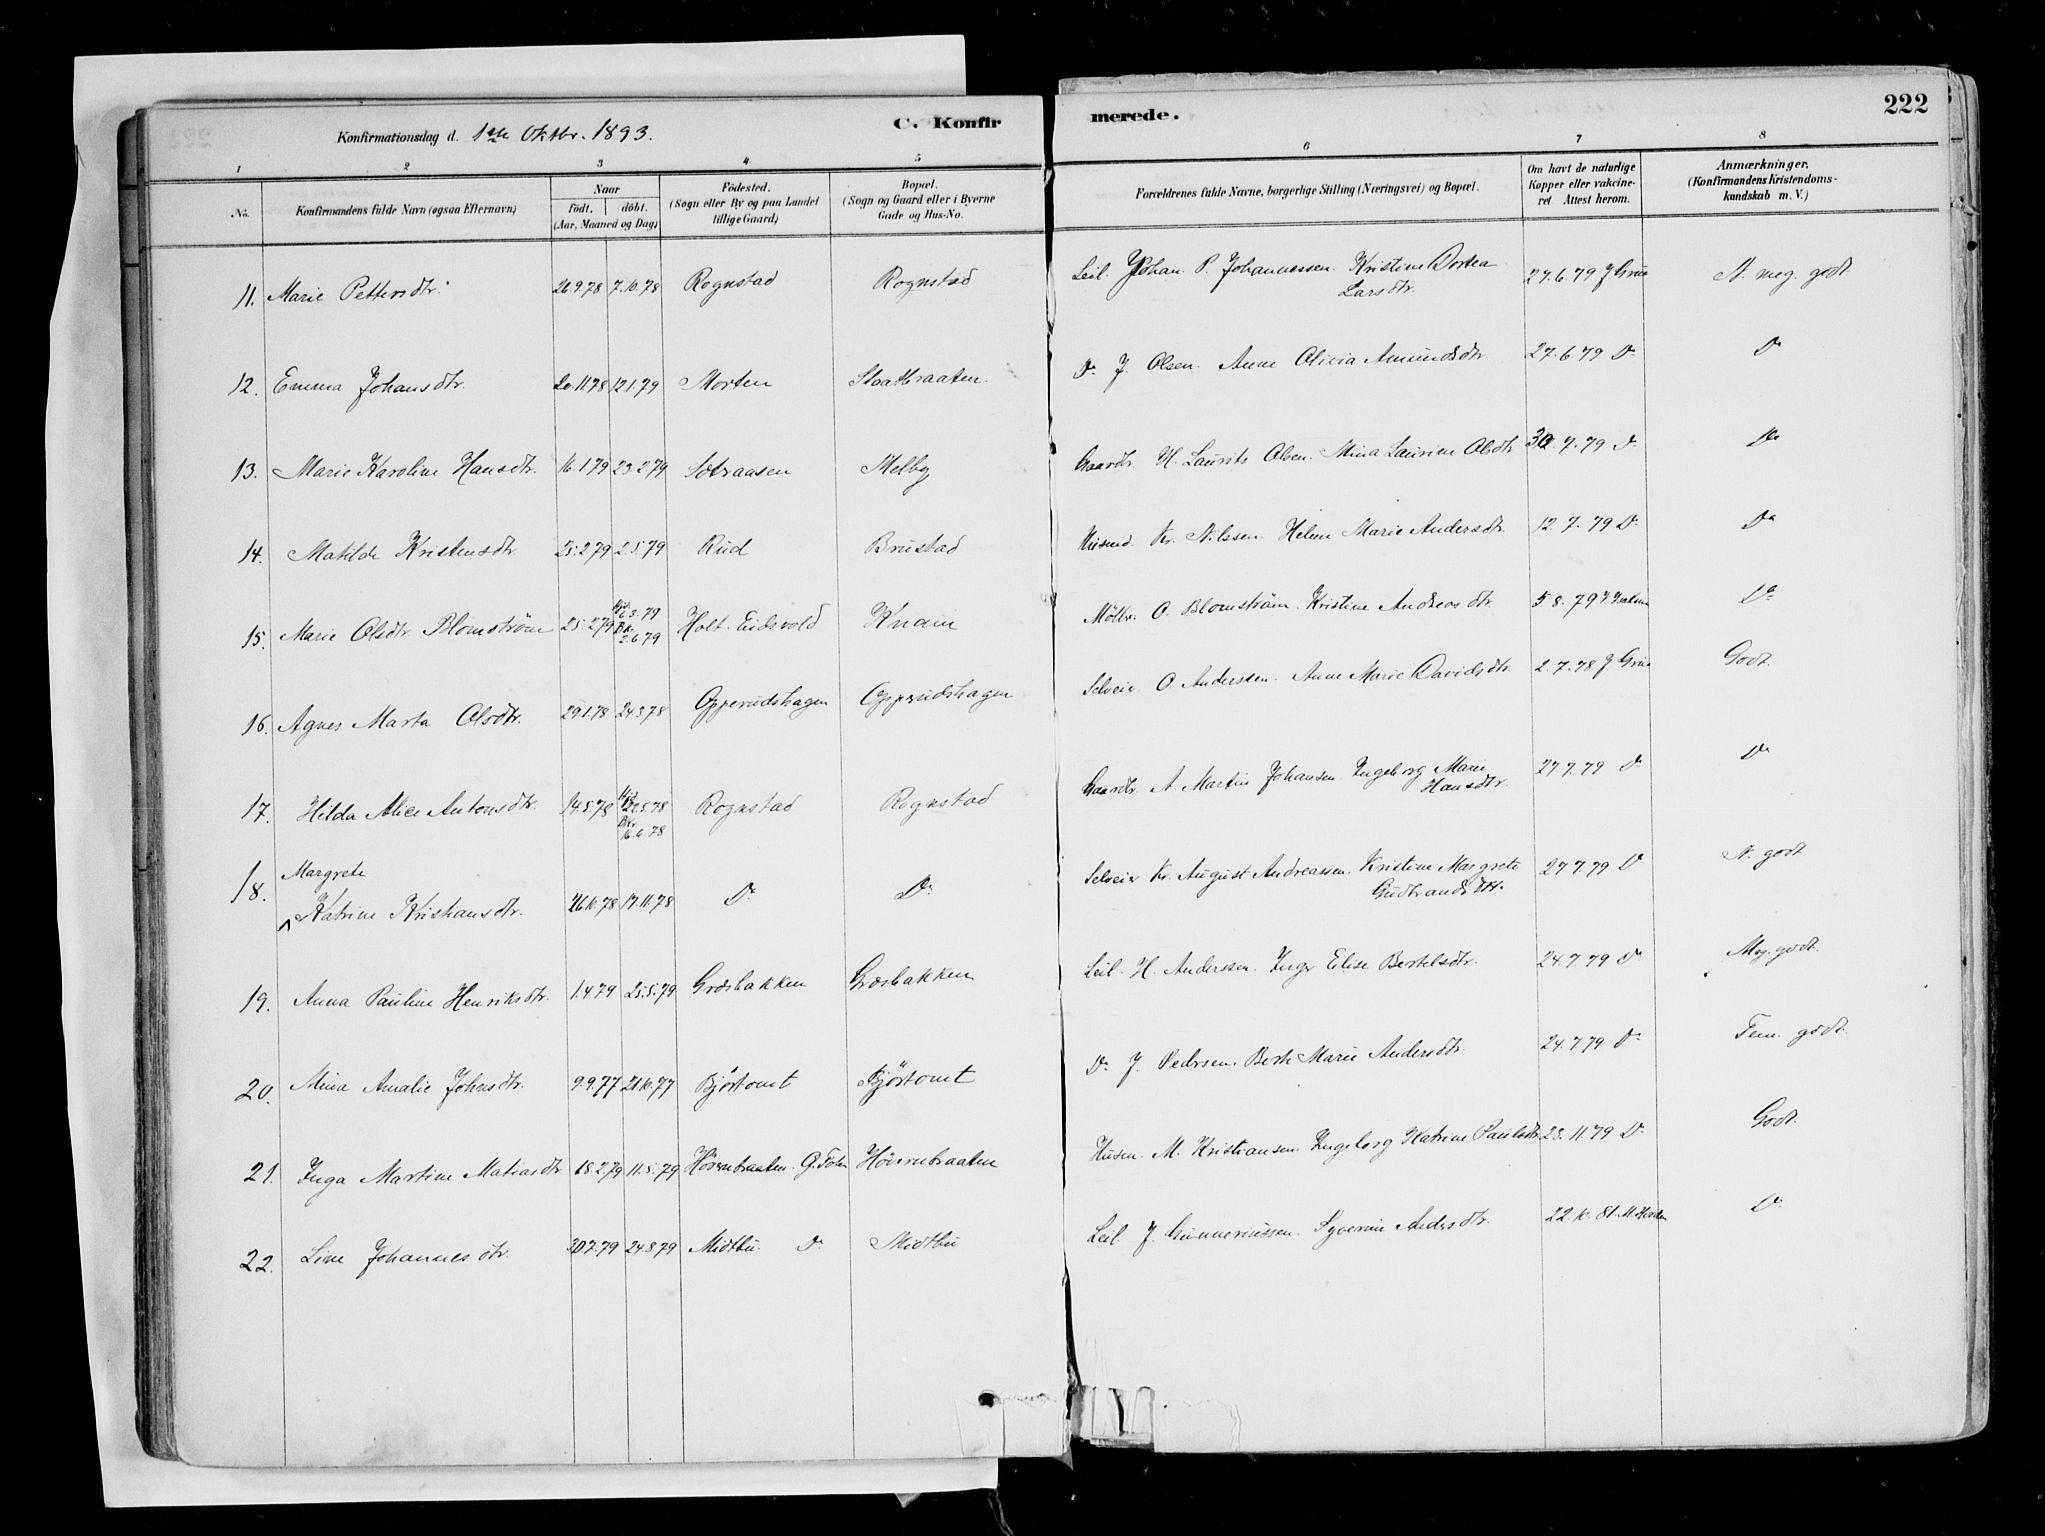 Konfirmationsdag d. 1ste Oktbr. 1893. C. Konfirmerede. 222
1 2 3 4 5 6 7 8
No. Konfirmandens fulde Navn (ogsaa Efternavn) Naar født. døbt. (Aar, Maaned og Dag) Födested. (Sogn eller By og paa Landet tillige Gaard) Bopæl. (Sogn og Gaard eller i Byerne Gade og Hus-No. Forældrenes fulde Navne, borgerlige Stilling (Næringsvei) og Bopæl. Om havt de naturlige Kopper eller vakcineret Attest herom. Anmærkninger. (Konfirmandens Kristendomskundskab m. V.)
11. Marie Pettersdtr. 26.9.78 7.10.78 Rognstad Rognstad Leil. Johan P. Johannessen. Kristine Dortea Larsdtr. 27.6.79 J Grue N. meg. godt
12. Emma Johansdtr. 20.11.78 12.1.79 Morten Slaatbraaten. Do J. Olsen. Anne Olivia Amundsdtr. 27.6.79 Do Do
13. Marie Karoline Hansdtr. 16.1.79 23.2.79 Sotraasen Melby Gaardbr. H. Laurits Olsen. Mina Laurine Olsdtr 30.7.79 Do Do
14. Matilde Kristensdtr. 25.2.79 2.5.79 Rud Brustad Husmd. Kr. Nilssen. Helene Marie Andersdtr. 12.7.79 Do Do
15. Marie Olsdtr Blomström 25.2.79 Hjd. 6.3.79 Bkr. 2.6.79 Holt. Eidsvold Knain Mølbr. O. Blomström. Kristine Andreasdtr. 5.8.79 Do
16. Agnes Marta Olsdtr. 29.1.78 24.3.78 Opperudshagen Opperudshagen Selveier O. Anderssen. Anne Marie Davidsdtr. 2.7.78 J Grue Godt.
17. Hilda Alice Antonsdtr. 14.5.78 Hjd. 22.5.78 Bkr. 16.6.78 Rognstad Rognstad Gaardbr. A. Martin Johansen. Ingeborg Marie Hansdtr. 27.7.79 Do Do
18. Margrete Katrine Kristiansdtr. 26.10.78 17.11.78 Do Do Selveier Kr. August Andreassen. Kristine Margrete Gudbrandsdtr. 27.7.79 Do N. godt
19. Anna Pauline Henriksdtr. 1.4.79 25.5.79 Græsbakken Græsbakken Leil. H. Anderssen. Inger Elise Bertelsdtr. 24.7.79 Do Meg. godt.
20. Mina Amalie Johnsdtr. 9.9.77 21.10.77 Bjørtomt Bjørtomt Do J. Pedersen. Berte Marie Andersdtr. 24.7.79 Do Tem. godt.
21. Inga Martine Matiasdtr 18.2.79 11.5.79 Hövernbraaten. G. Toten Hövernbraaten Husm. M. Kristiansen. Ingeborg Katrine Paulsdtr. 23.11.79 Do Godt.
22. Line Johannesdtr. 30.7.79 24.8.79 Midtbu. Do Midtbu Leil J. Gunneriussen. Syverine Andersdtr. 22.10.81. Do